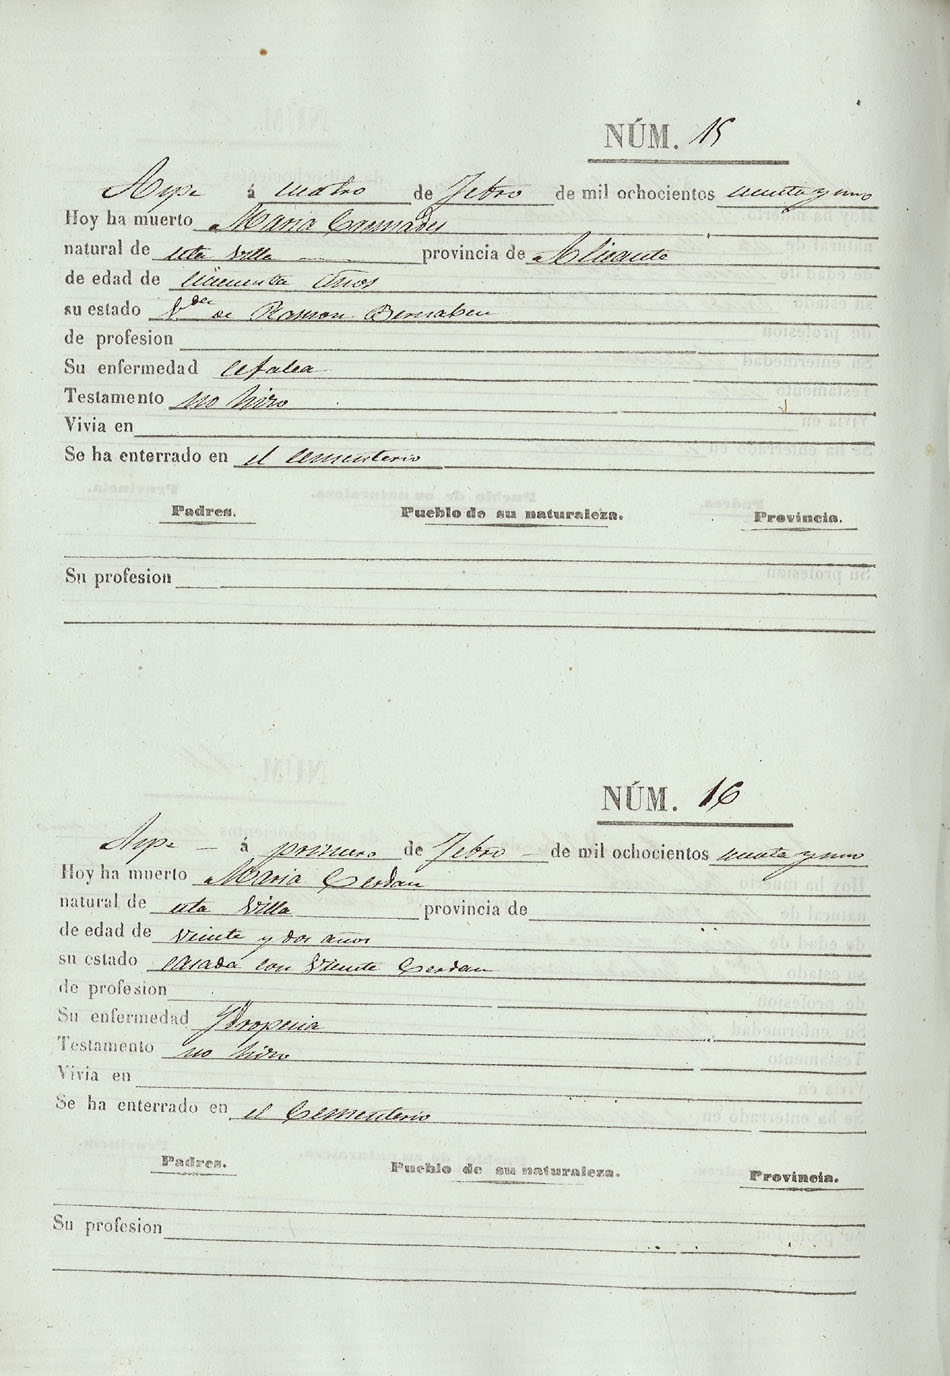 NÚM. 15
Aspe á cuatro de Febro de mil ochocientos cuarenta y uno
Hoy ha muerto Maria Cremades
natural de esta Villa provincia de Alicante
de edad de cincuenta años
su estado V.da de Ramon Bernabeu
de profesion
Su enfermedad Cefalea
Testamento no hizo
Vivia en
Se ha enterrado en el cementerio
Padres. Pueblo de su naturaleza. Provincia.
Su profesion
NÚM. 16
Aspe á primero de Febro de mil ochocientos y uno
Hoy ha muerto Maria Cerdan
natural de esta Villa provincia de
de edad de veinte y dos años
su estado casada con Vicente Cerdan
de profesion
Su enfermedad
Testamento no hizo
Vivia en
Se ha enterrado en el Cementerio
Padres. Pueblo de su naturaleza. Provincia.
Su profesion